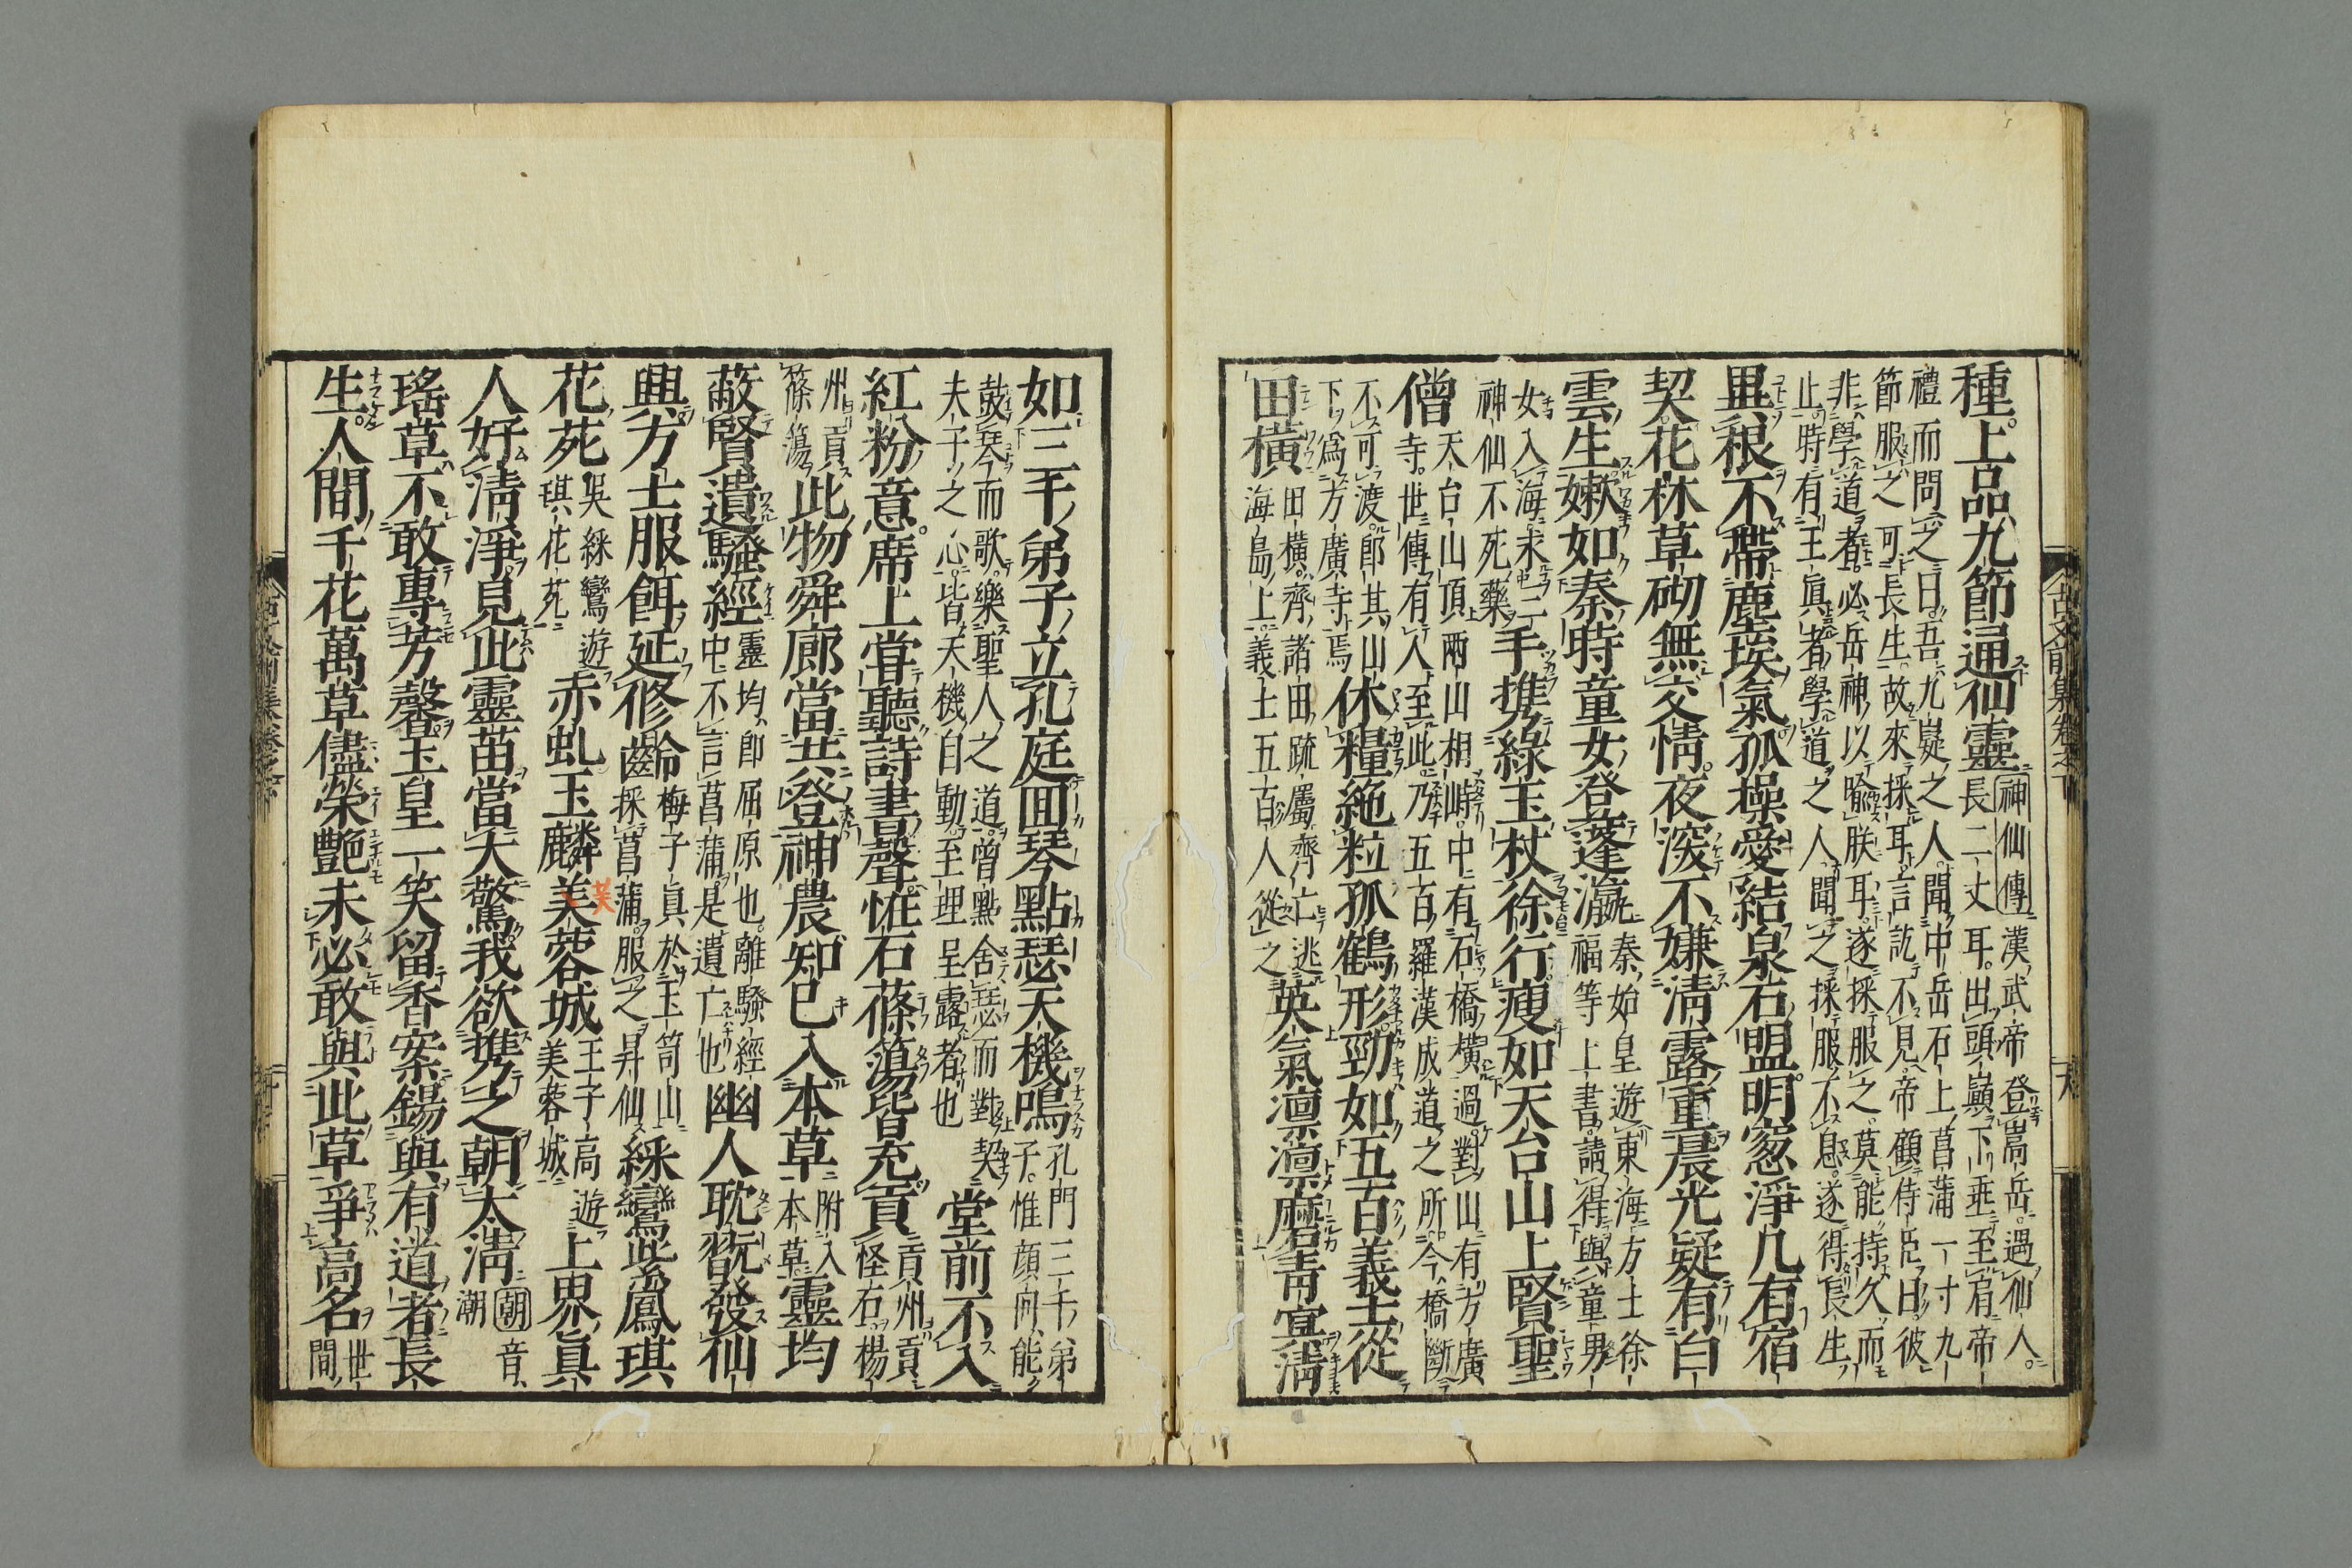 種上品九節通仙靈
神仙傳漢武帝登嵩岳過仙人
長二丈耳出頭巓下垂至肩帝
禮而問之曰吾九嶷之人聞中岳石上菖蒲一寸九
節服之可長生故來採耳言訖不見帝顧侍臣曰彼
非學道者必岳神以喻朕耳遂採服之莫能持久而
止時有王眞者學道之人聞之採服不息遂得長生
異根不帶塵埃氣孤操愛結泉石盟明窓淨几有宿
契花林草砌無交情夜深不嫌淸露重晨光疑有白
雲生嫰如秦時童女登蓬瀛
秦始皇遊東海方士徐
福等上書請得與童男
女入海求
神仙不死藥
手携綠玉杖徐行瘦如天台山上賢聖
僧
天台山頂兩山相峙中有石橋橫過對山有方廣
寺世傳有人至此乃五百羅漢成道之所今橋斷
不可渡卽其山
下爲方廣寺焉
休糧絶粒孤鶴形勁如五百義士從
田橫
田橫齊諸田疏屬齊亡逃
海島上義士五百人從之
英氣凛凛磨靑冥淸
如三千弟子立孔庭回琴點瑟天機鳴
孔門三千弟
子惟顔向能
鼓琴而歌樂聖人之道曽點舍瑟而對契
夫子之心皆天機自動至理呈露者也
堂前不入
紅粉意席上甞聽詩書聲恠石篠簜皆充貢
貢州貢
怪石楊
州貢
篠簜
此物舜廊當共登神農知已入本草
附入
本草
靈均
蔽賢遺騷經
靈均卽屈原也離騷經
中不言菖蒲是遺亡也
幽人耽翫發仙
興方士服餌延修齡
梅子眞於玉笥山
採菖蒲服之昇仙
綵鸞紫鳳琪
花苑
吳綵鸞遊
琪花苑
赤虬玉麟美芙蓉城
王子高遊
美蓉城
上界眞
人好淸淨見此靈苗當大驚我欲携之朝太淸
朝音
潮
瑤草不敢專芳馨玉皇一笑留香案錫與有道者長
生人間千花萬草儘榮艷未必敢與此草爭高名
世
間